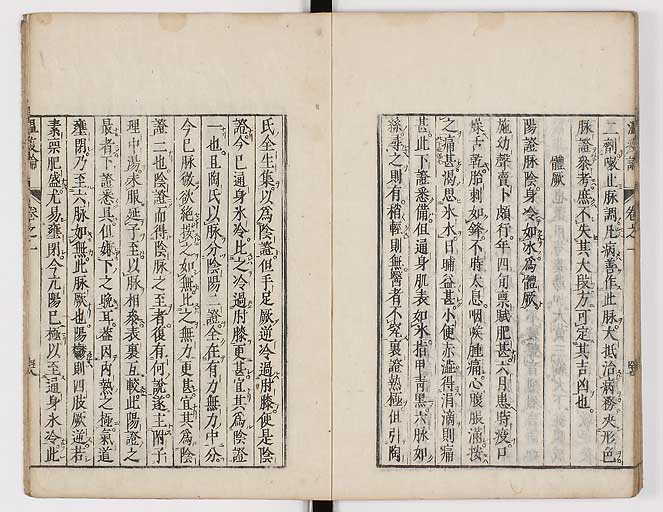 二劑噦止脉調凡病善作此脉大抵治病務夾形色
脉證參考庶不失其大段方可定其吉凶也
體厥
陽證脉陰身冷如冰爲體厥
施幼聲賣卜頗行年四旬禀賦肥甚六月患時疫口
燥舌乾胎刺如鋒不時太息咽喉腫痛心腹脹滿按
之痛甚渴思氷水日晡益甚小便赤澁得涓滴則痛
甚此下證悉備但通身肌表如氷指甲青黑六脉如
絲尋之則有稍輕則無醫者不究裏證熱極但引陶
氏全生集以為陰證但手足厥逆冷過肘膝便是陰
證今已通身氷冷比之冷過肘膝更甚宜其為陰證
一也且陶氏以脉分陰陽二證全在有力無力中分
今已脉微欲絶按之如無比之無力更甚宜其爲陰
證二也陰證而得陰脉之至者復有何說遂主附子
理中湯未服延予至以脉相參表裏互較此陽證之
最者下證悉具但嫌下之晚耳盖因内熱之極氣道
壅閉乃至六脉如無此脉厥也陽則四肢厥逆若
素禀肥盛尤易壅閉今亢陽已極以至通身氷冷此
温疫論
卷之一